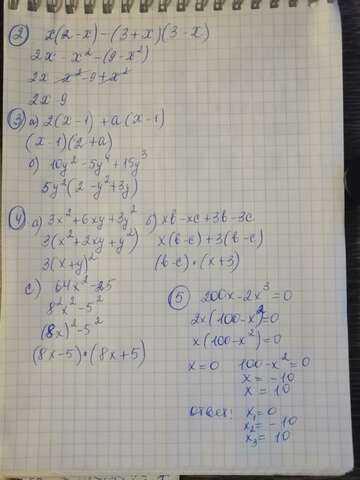 ② x(2-x)-(3+x)(3-x)
2x-x²-(9-x²)
2x-x²-9+x²
2x-9
③ а) 2(x-1)+a(x-1)
(x-1)(2+a)
б) 10y²-5y⁴+15y³
5y²(2-y²+3y)
④ а) 3x²+6xy+3y²
3(x²+2xy+y²)
3(x+y)²
б) xb-xc+3b-3c
x(b-c)+3(b-c)
(b-c)·(x+3)
c) 64x²-25
8²x²-5²
(8x)²-5²
(8x-5)·(8x+5)
⑤ 200x-2x³=0
2x(100-x²)=0
x(100-x²)=0
x=0 100-x²=0
x=-10
x=10
ответ: x₁=0
x₂=-10
x₃=10